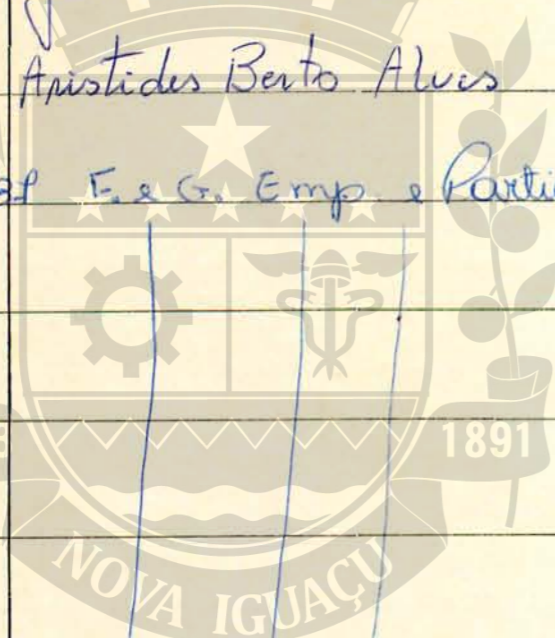 Aristides Berto Alves
F. & G. Emp. e Parti
1891
NOVA IGUAÇU